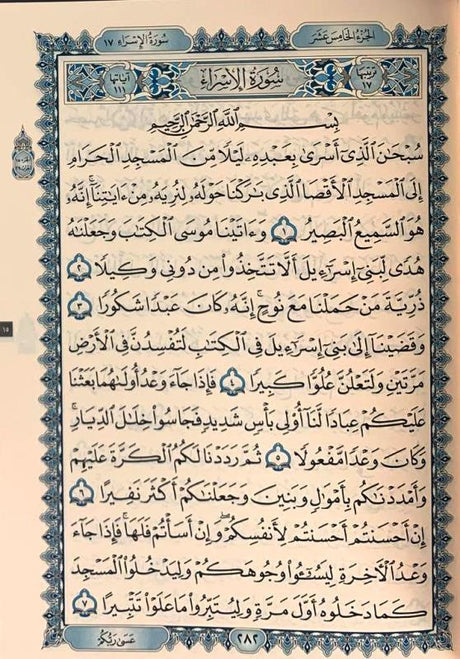 الجزء الخامس عشر
سورة الإسراء ١٧
ترتيبها ١٧
سورة الإسراء
آياتها ١١١
بِسْمِ ٱللَّهِ ٱلرَّحْمَٰنِ ٱلرَّحِيمِ
سُبْحَٰنَ ٱلَّذِىٓ أَسْرَىٰ بِعَبْدِهِۦ لَيْلًا مِّنَ ٱلْمَسْجِدِ ٱلْحَرَامِ
إِلَى ٱلْمَسْجِدِ ٱلْأَقْصَا ٱلَّذِى بَٰرَكْنَا حَوْلَهُۥ لِنُرِيَهُۥ مِنْ ءَايَٰتِنَآ ۚ إِنَّهُۥ
هُوَ ٱلسَّمِيعُ ٱلْبَصِيرُ ١ وَءَاتَيْنَا مُوسَى ٱلْكِتَٰبَ وَجَعَلْنَٰهُ
هُدًى لِّبَنِىٓ إِسْرَٰٓءِيلَ أَلَّا تَتَّخِذُوا۟ مِن دُونِى وَكِيلًا ٢
ذُرِّيَّةَ مَنْ حَمَلْنَا مَعَ نُوحٍ ۚ إِنَّهُۥ كَانَ عَبْدًا شَكُورًا ٣
وَقَضَيْنَآ إِلَىٰ بَنِىٓ إِسْرَٰٓءِيلَ فِى ٱلْكِتَٰبِ لَتُفْسِدُنَّ فِى ٱلْأَرْضِ
مَرَّتَيْنِ وَلَتَعْلُنَّ عُلُوًّا كَبِيرًا ٤ فَإِذَا جَآءَ وَعْدُ أُولَىٰهُمَا بَعَثْنَا
عَلَيْكُمْ عِبَادًا لَّنَآ أُو۟لِى بَأْسٍ شَدِيدٍ فَجَاسُوا۟ خِلَٰلَ ٱلدِّيَارِ ۚ
وَكَانَ وَعْدًا مَّفْعُولًا ٥ ثُمَّ رَدَدْنَا لَكُمُ ٱلْكَرَّةَ عَلَيْهِمْ
وَأَمْدَدْنَٰكُم بِأَمْوَٰلٍ وَبَنِينَ وَجَعَلْنَٰكُمْ أَكْثَرَ نَفِيرًا ٦
إِنْ أَحْسَنتُمْ أَحْسَنتُمْ لِأَنفُسِكُمْ ۖ وَإِنْ أَسَأْتُمْ فَلَهَا ۚ فَإِذَا جَآءَ
وَعْدُ ٱلْءَاخِرَةِ لِيَسُۥٓـُٔوا۟ وُجُوهَكُمْ وَلِيَدْخُلُوا۟ ٱلْمَسْجِدَ
كَمَا دَخَلُوهُ أَوَّلَ مَرَّةٍ وَلِيُتَبِّرُوا۟ مَا عَلَوْا۟ تَتْبِيرًا ٧
١٥
٢٨٢
عَسَىٰ رَبُّكُمْ